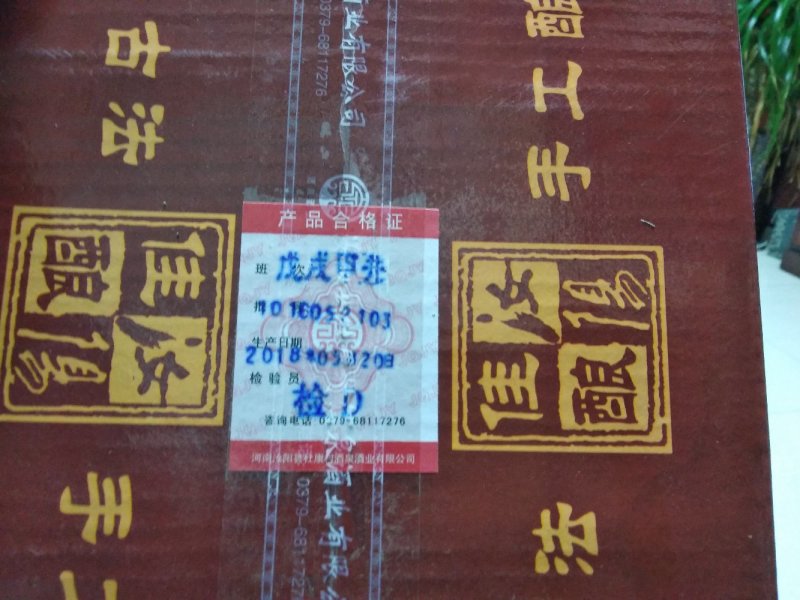 古法
手工酿
产品合格证
班 次
戊戌
生产日期
2018年05月20日
检验员
检 D
咨询电话 0379-68117276
河南汝阳县杜康村酒泉酒业有限公司
汝阳佳酿
汝阳佳酿
手工
法
酒业有限公司
0379-68117276
酒业有限公
0379-68117276